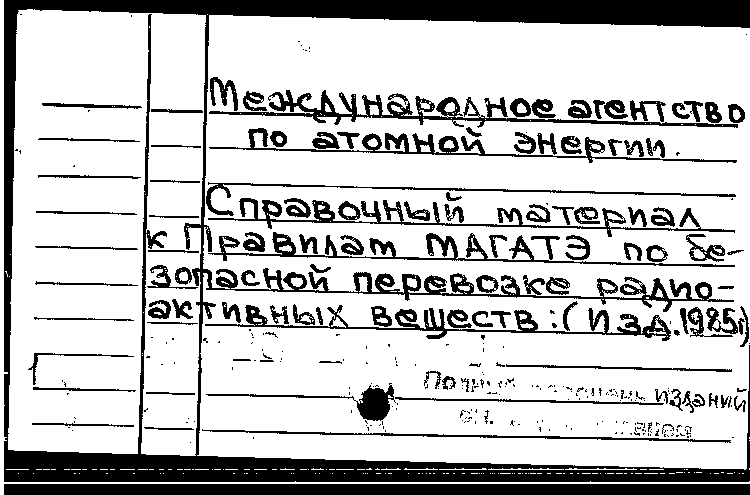 Международное агентство
по атомной энергии.
Справочный материал
к Правилам МАГАТЭ по бе-
зопасной перевозке радио-
активных веществ: (Изд. 1985г)
изданий